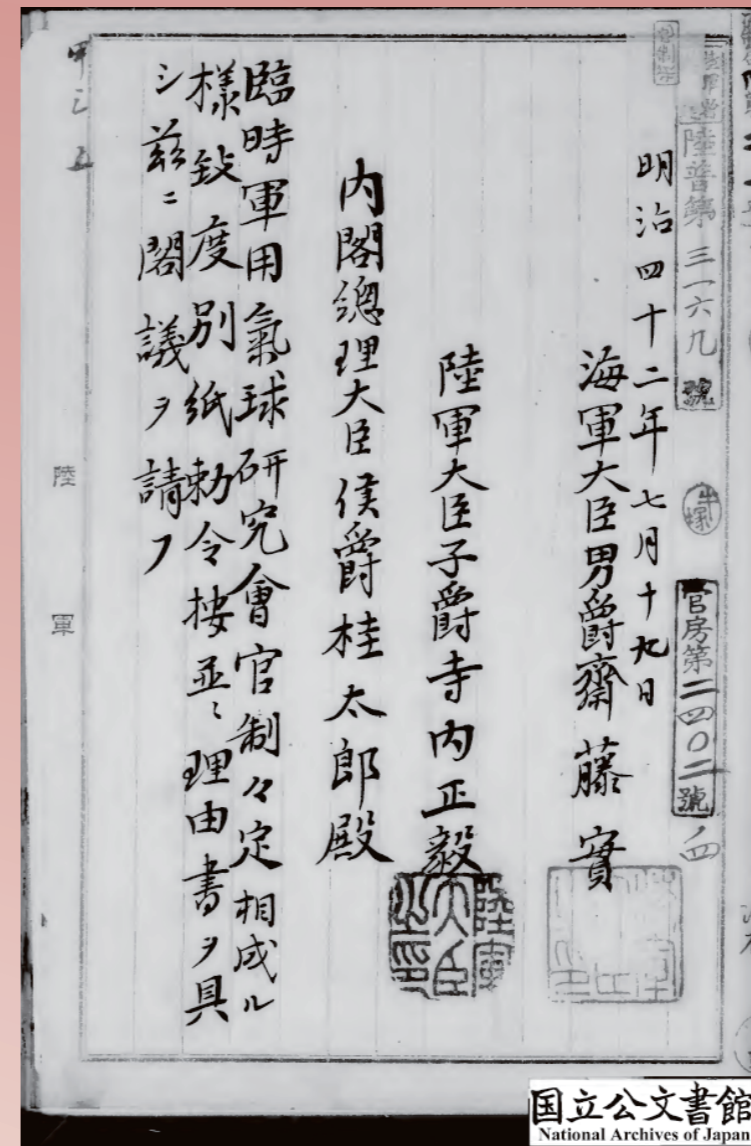 陸普第三一六九號
牛塚
官房第二四〇二號ノ四
明治四十二年七月十九日
海軍大臣男爵齋藤實
陸軍大臣子爵寺内正毅
陸軍大臣之印
内閣總理大臣侯爵桂太郎殿
臨時軍用氣球研究會官制々定相成ル
樣致度別紙勅令按並ニ理由書ヲ具
シ茲ニ閣議ヲ請フ
陸軍
国立公文書館
National Archives of Japan